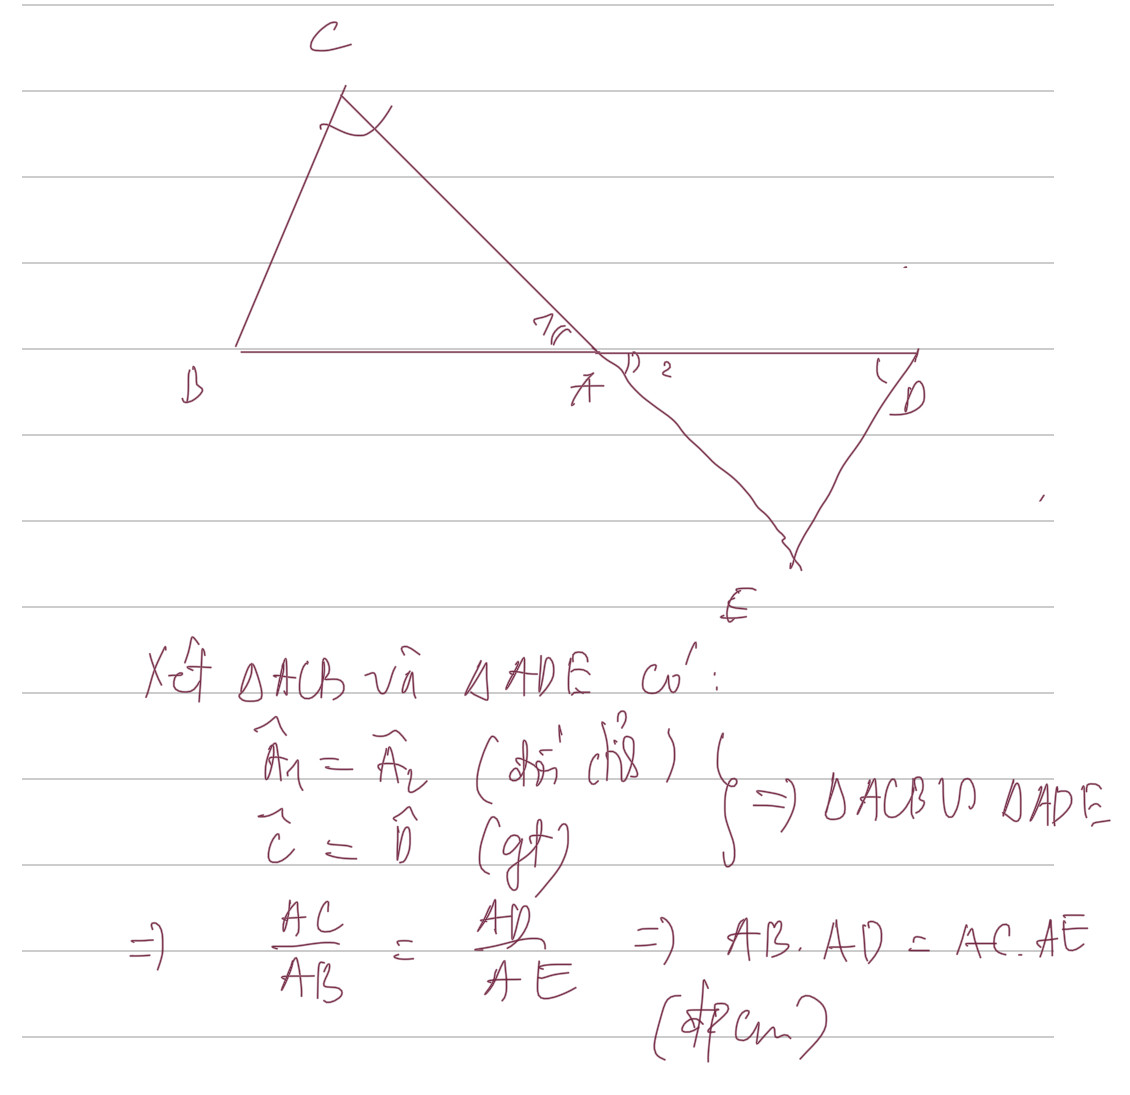 C
1
B
A
2
D
E
Xét ΔACB và ΔADE có:
Â1 = Â2 (đối đỉnh)
Ĉ = D̂ (gt)
} => ΔACB ∽ ΔADE
=> AC/AB = AD/AE => AB. AD = AC. AE
(đpcm)